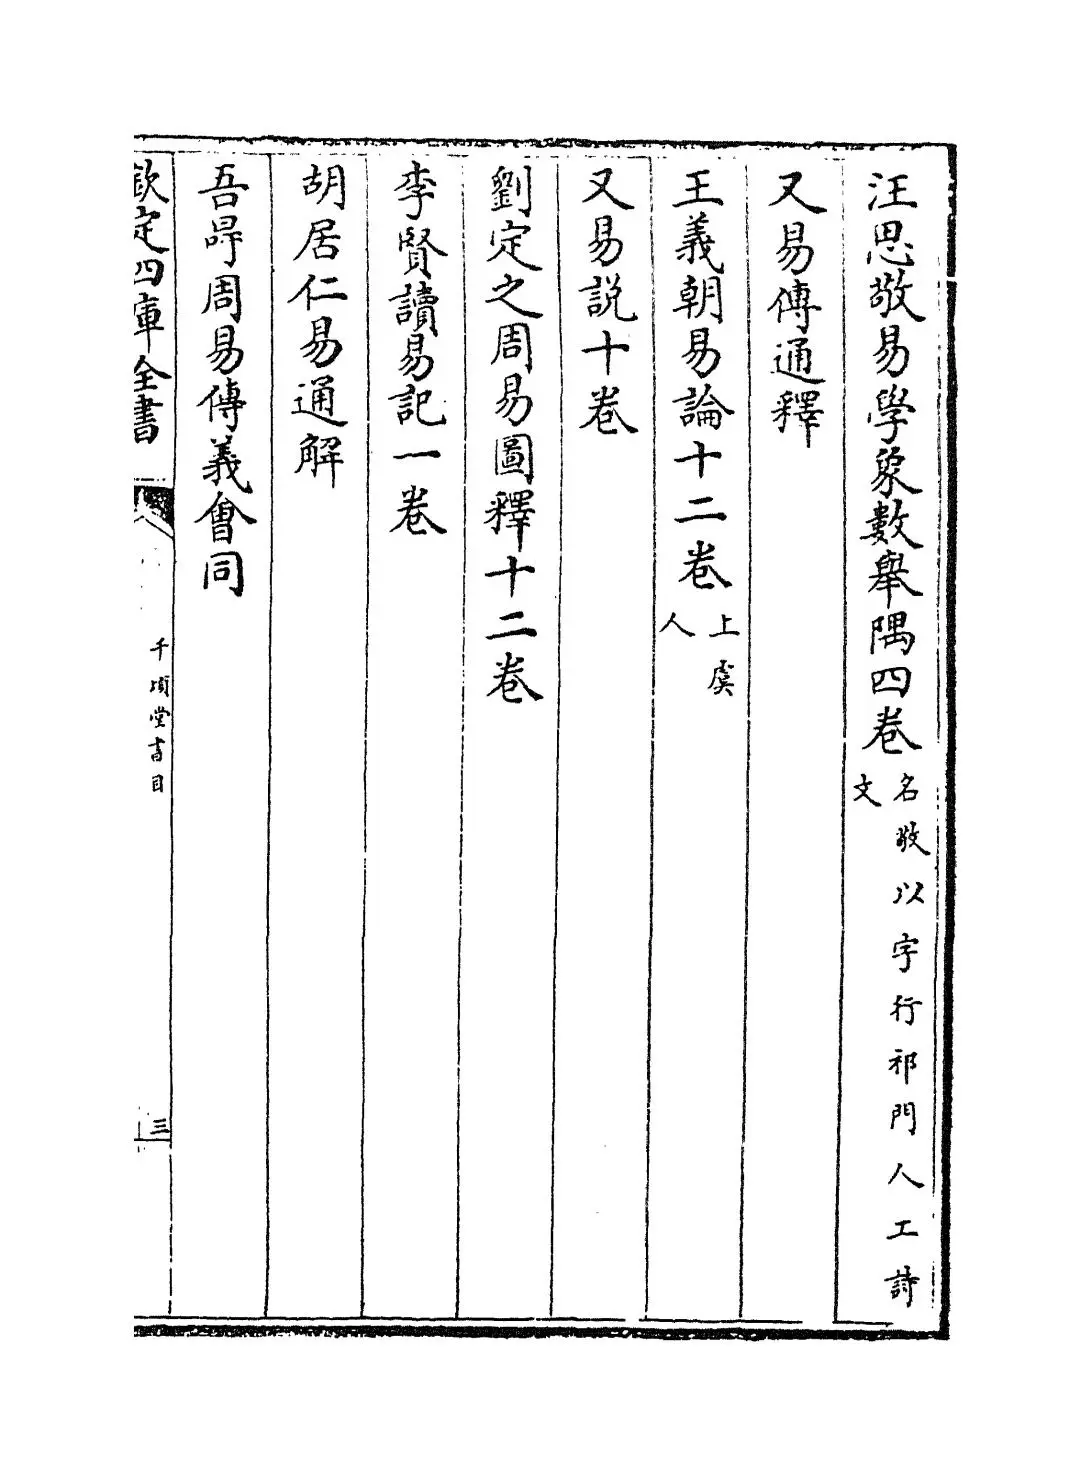 汪思敬易學象數舉隅四卷名敬以字行祁門人工詩文
又易傳通釋
王義朝易論十二卷上虞人
又易説十卷
劉定之周易圖釋十二卷
李賢讀易記一卷
胡居仁易通解
吾冔周易傳義會同
欽定四庫全書
千頃堂書目
三